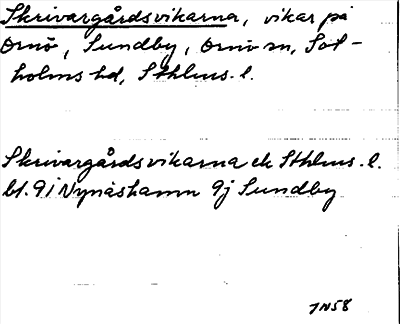 Skrivargårdsvikarna, vikar på
Ornö, Sundby, Ornö sn, Sot-
holms hd, Sthlms. l.
Skrivargårdsvikarna ek Sthlms. l.
bl. 9i Nynäshamn 9j Sundby
JN58